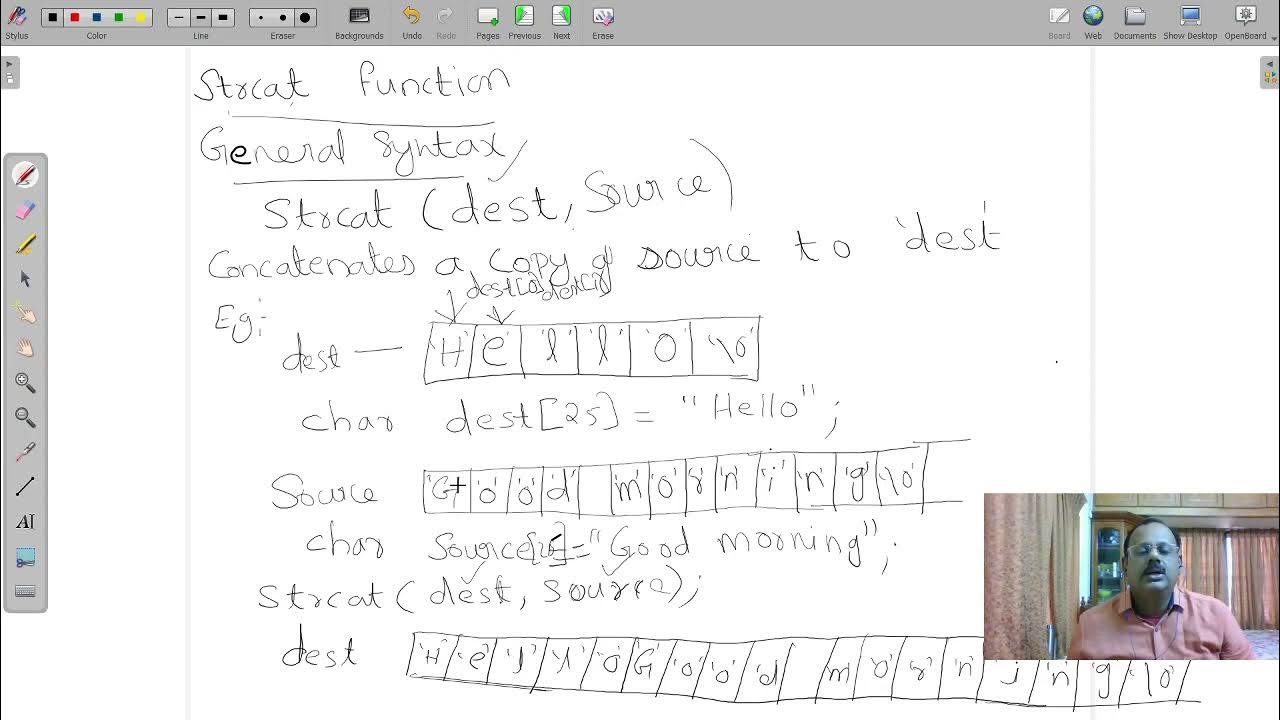 Stylus Color Line Eraser Backgrounds Undo Redo Pages Previous Next Erase Board Web Documents Show Desktop OpenBoard
Strcat function
General Syntax
Strcat (dest, Source)
Concatenates a copy of source to 'dest'
dest[0] dest[1]
Eg:
dest — 'H' 'e' 'l' 'l' 'o' '\0'
char dest[25] = "Hello";
Source 'G' 'o' 'o' 'd' 'm' 'o' 'r' 'n' 'i' 'n' 'g' '\0'
char Source[25]="Good morning";
Strcat( dest, source);
dest 'H' 'e' 'l' 'l' 'o' 'G' 'o' 'o' 'd' 'm' 'o' 'r' 'n' 'i' 'n' 'g' '\0'
AI